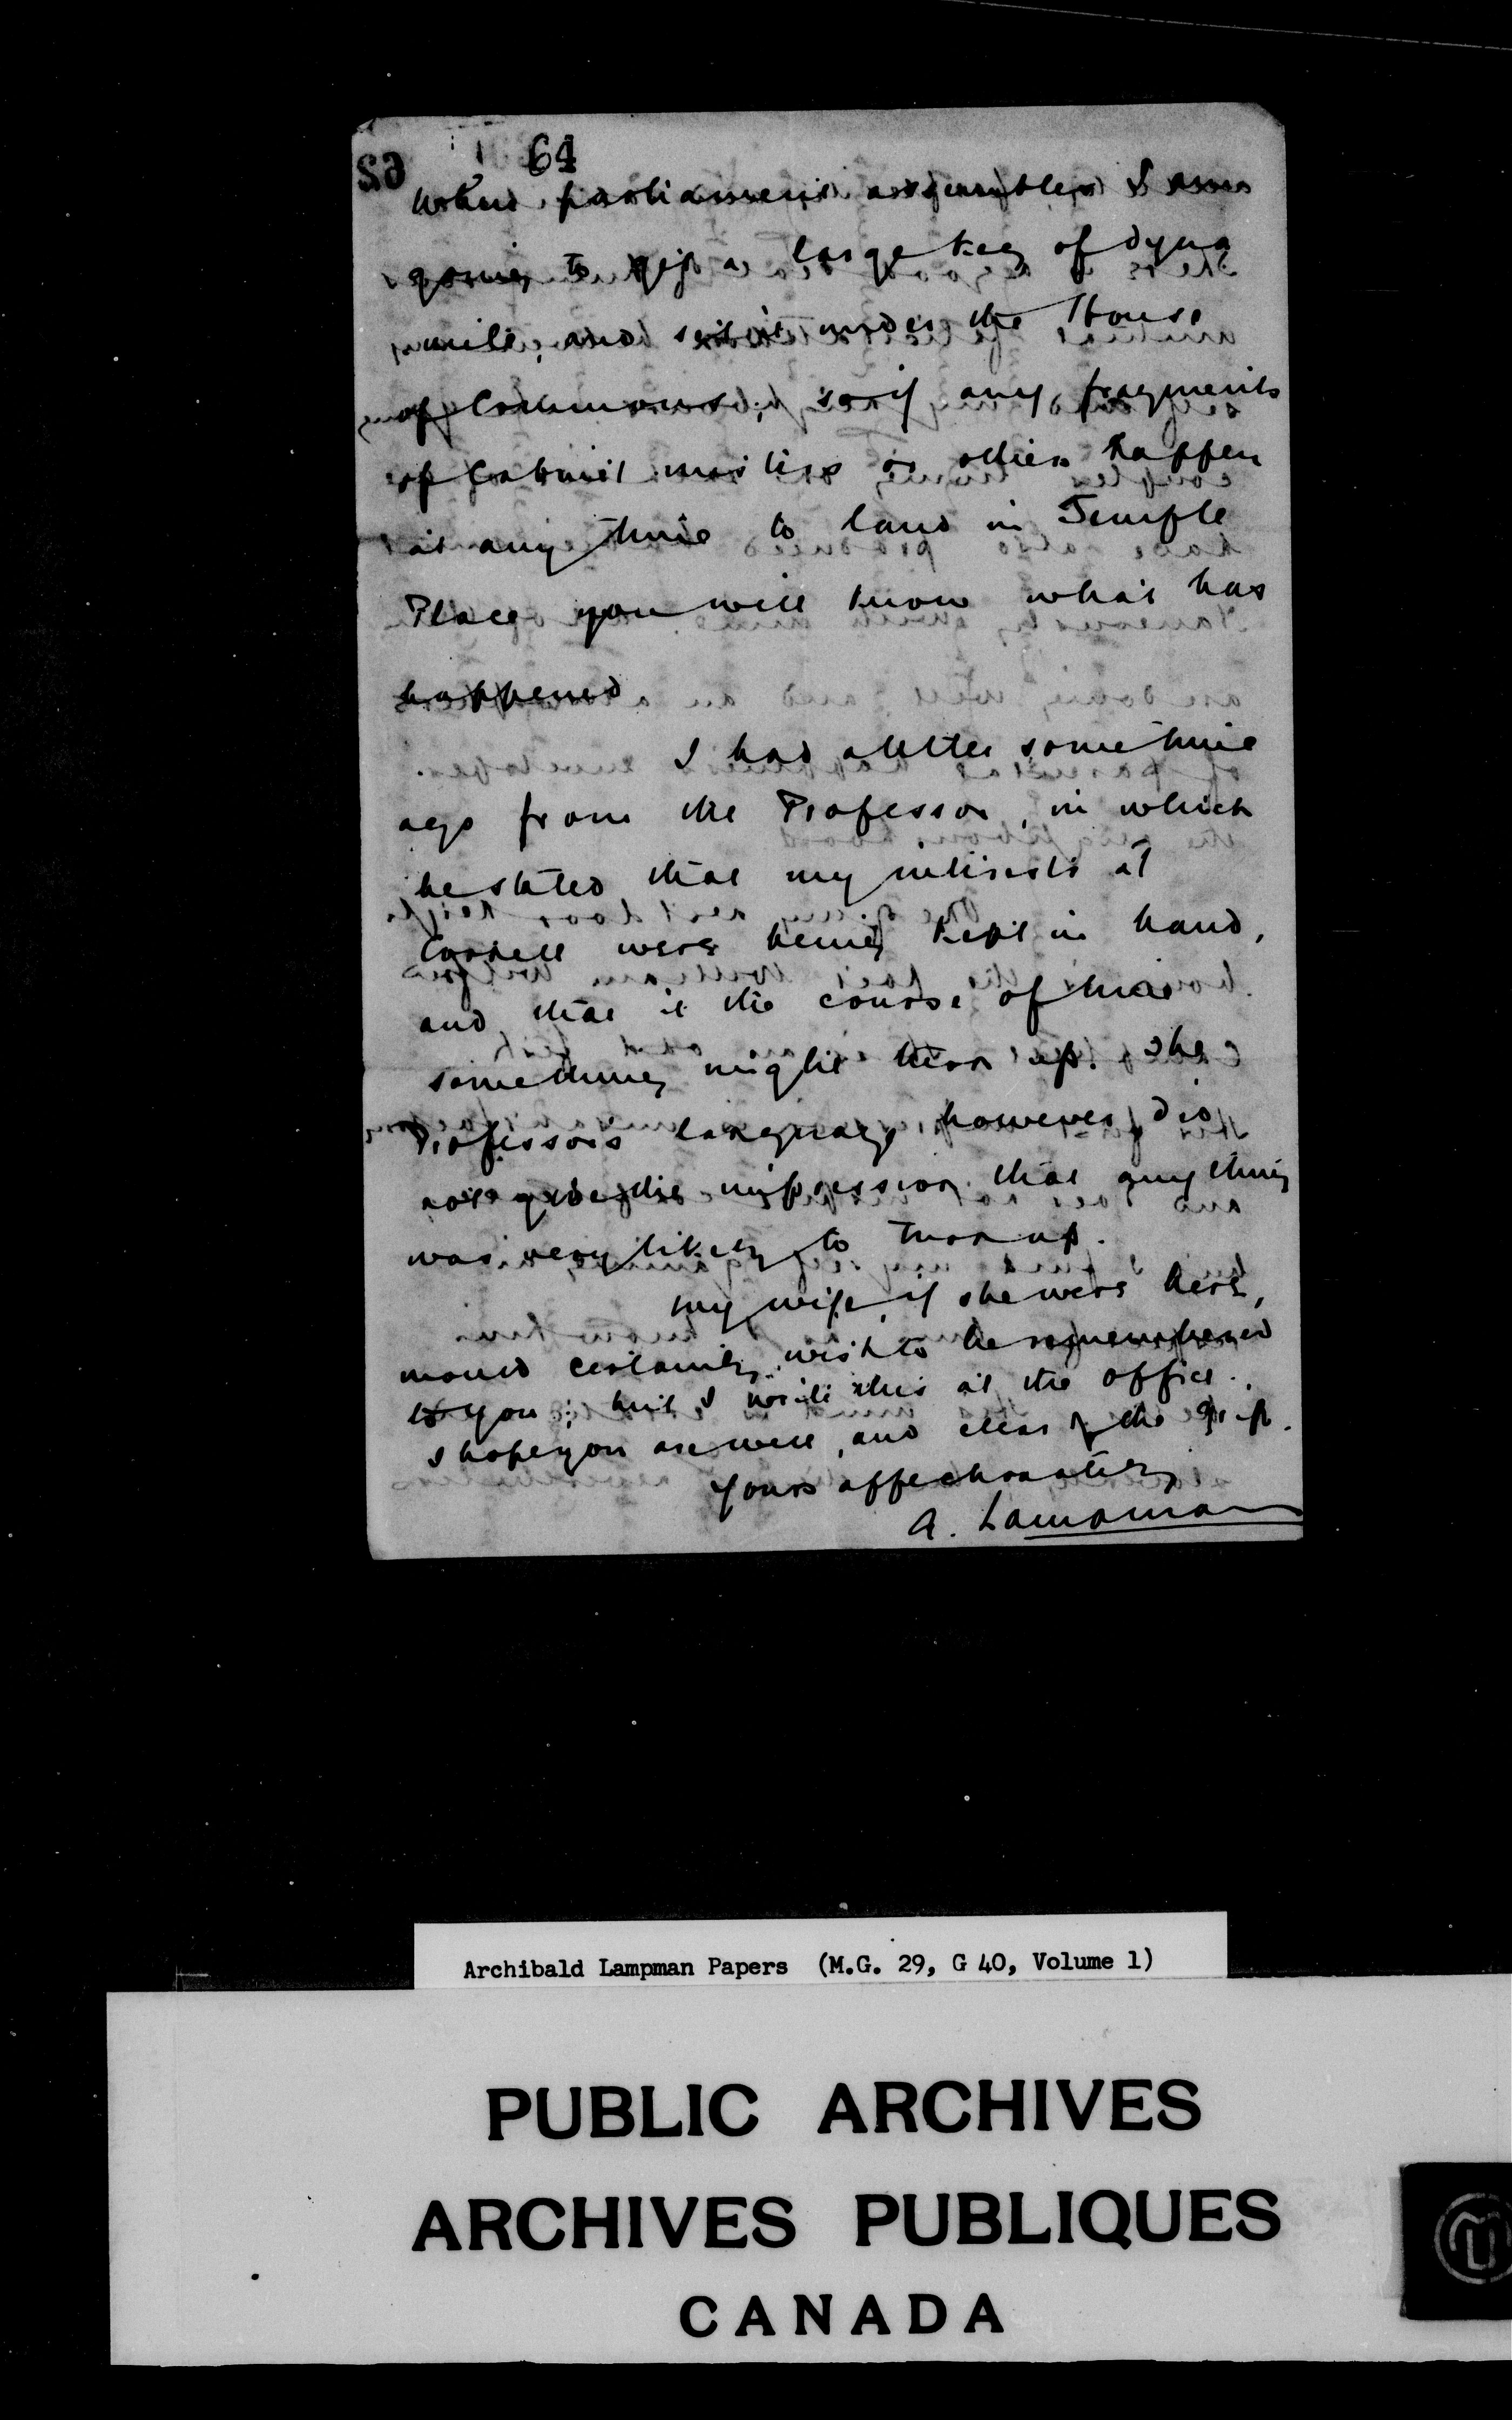 64
when parliament assembles I am
going to get a large keg of dyna
mite, and set it under the House
of Commons; so if any fragments
of Cabinet ministers or others happen
at any time to land in Temple
Place you will know what has
happened
I had a letter some time
ago from the Professor, in which
he stated that my interests at
Cornell were being kept in hand,
and that in the course of time
something might turn up. The
Professor's language, however, did
not give the impression that anything
was very likely to turn up.
My wife, if she were here,
would certainly wish to be remembered
to you; but I write this at the office.
I hope you are well, and clear of the grip.
Yours affectionately
A. Lampman
Archibald Lampman Papers (M.G. 29, G 40, Volume 1)
PUBLIC ARCHIVES
ARCHIVES PUBLIQUES
CANADA